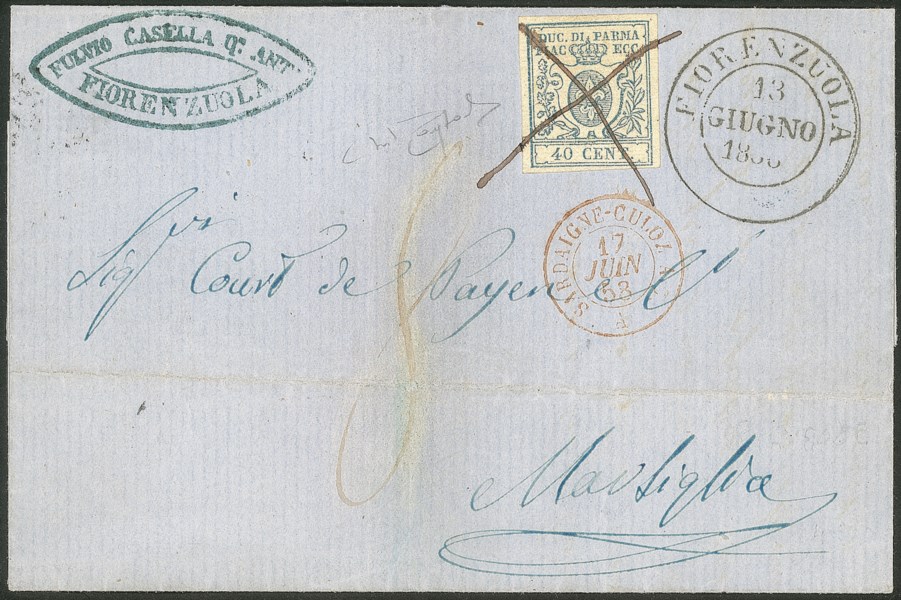 FULVIO CASELLA Q.m ANT.
FIORENZUOLA
DUC. DI PARMA
PIAC. ECC.
40 CENT.
FIORENZUOLA
13
GIUGNO
SARDAIGNE-CULOZ
17
JUIN
58
Sigri Court de Payen & Co
Marsiglia